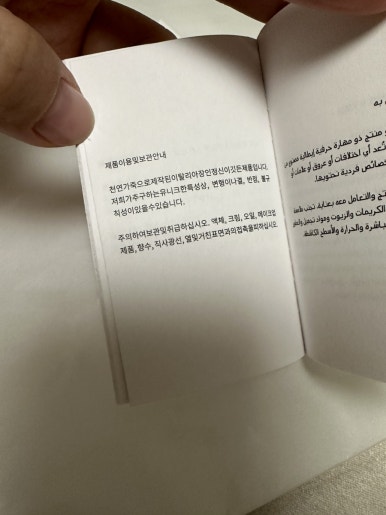 제품이용및보관안내
천연가죽으로제작된이탈리아장인정신이깃든제품입니다.
저희가추구하는유니크한특성상, 변형이나결, 반점, 불규
칙성이있을수있습니다.
주의하여보관및취급하십시오. 액체, 크림, 오일, 메이크업
제품, 향수, 직사광선, 열및거친표면과의접촉을피하십시오
منتج ذو مهارة حرفية إيطالية
أي اختلافات أو عروق أو علامات أو
خصائص فردية نحتويها.
والتعامل معه بعناية. تجنب ملامسة
الكريمات والزيوت ومواد تجميل
والحرارة والأسطح الكاشطة.